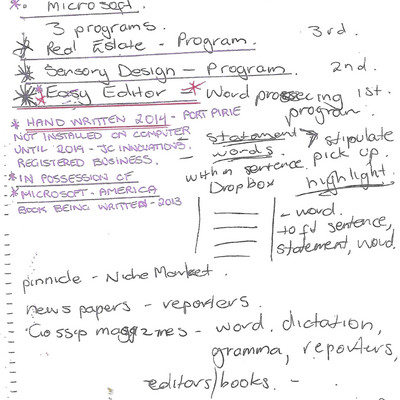 * Microsoft.
3 programs.
* Real Estate - Program. 3rd.
* Sensory Design - Program. 2nd.
* Easy Editor = * Word prosecing 1st.
program.
* HAND WRITTEN 2014 - PORT PIRIE
NOT INSTALLED ON COMPUTER
UNTIL 2019 - JC INNOVATIONS.
REGISTERED BUSINESS.
* IN POSSESSION OF
* MICROSOFT - AMERICA
BOOK BEING WRITTEN - 2013
statement → stipulate
- words. pick up.
within sentence highlight.
Dropbox
- word.
to fd sentence,
statement, word.
pinnicle - Niche Market.
news papers - reporters.
Gossip maggzines - word dictation,
gramma, reporters,
editors/books. -